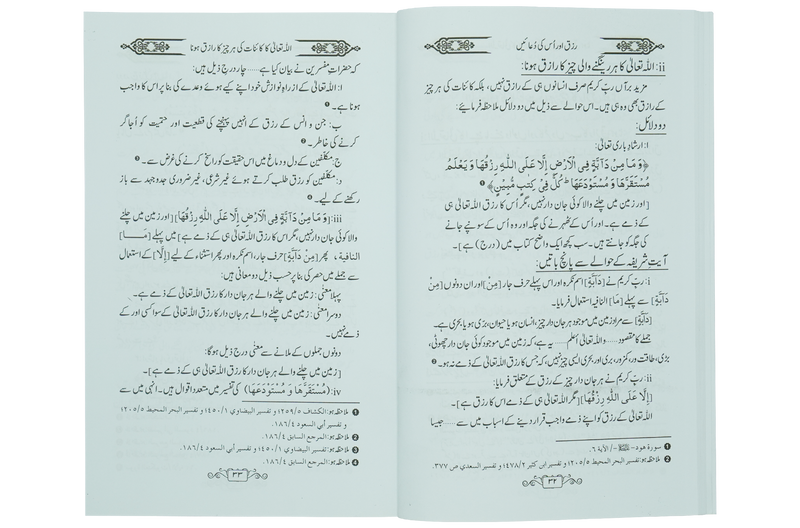 رزق اور اُس کی دُعائیں
ii: اللہ تعالیٰ کا ہر رینگنے والی چیز کا رازق ہونا:
مزید برآں ربِّ کریم صرف انسانوں ہی کے رازق نہیں، بلکہ کائنات کی ہر چیز
کے رازق بھی وہ ہی ہیں۔ اس حوالے سے ذیل میں دو دلائل ملاحظہ فرمائیے:
دو دلائل:
ا: ارشادِ باری تعالیٰ:
﴿وَ مَا مِنْ دَآبَّةٍ فِي الْاَرْضِ اِلَّا عَلَى اللّٰهِ رِزْقُهَا وَ يَعْلَمُ
مُسْتَقَرَّهَا وَ مُسْتَوْدَعَهَا ؕ كُلٌّ فِيْ كِتٰبٍ مُّبِيْنٍ﴾ ❶
[اور زمین میں چلنے والا کوئی جان دار نہیں، مگر اُس کا رزق اللہ تعالیٰ ہی
کے ذمے ہے۔ اور اُس کے ٹھہرنے کی جگہ اور وہ اُس کے سونپے جانے
کی جگہ کو جانتے ہیں۔ سب کچھ ایک واضح کتاب میں (درج) ہے]۔
آیتِ شریفہ کے حوالے سے پانچ باتیں:
i: ربِّ کریم نے [دَآبَّةٍ] اسم نکرہ اور اس پہلے حرف جار [مِنْ] اور ان دونوں [مِنْ
دَآبَّةٍ] سے پہلے [مَا] النافیہ استعمال فرمایا۔
[دَآبَّةٍ] سے مراد زمین میں موجود ہر جان دار چیز، انسان ہو یا حیوان، بڑی ہو یا بحری ہے۔
جملے کا مقصود...... واللہ أعلم...... یہ ہے، کہ زمین میں موجود کوئی جان دار چھوٹی،
بڑی، طاقت ور، کمزور، بری اور بحری ایسی چیز نہیں، کہ جس کا رزق اللہ تعالیٰ کے ذمے نہ ہو۔ ❷
ii: ربِّ کریم نے ہر جان دار چیز کے رزق کے متعلق فرمایا:
[اِلَّا عَلَى اللّٰهِ رِزْقُهَا] [مگر اللہ تعالیٰ ہی کے ذمے اس کا رزق ہے]۔
اللہ تعالیٰ کے رزق کو اپنے ذمے واجب قرار دینے کے اسباب میں سے...... جیسا
❶ سورة هود - ﷺ -/ الآية ٦.
❷ ملاحظہ ہو: تفسير البحر المحيط ٢٠٥/٥؛ و تفسير ابن كثير ٤٧٨/٢؛ و تفسير السعدي ص ٣٧٧.
٣٢
اللہ تعالیٰ کا کائنات کی ہر چیز کا رازق ہونا
کہ حضراتِ مفسرین نے بیان کیا ہے...... چار درج ذیل ہیں:
ا: اللہ تعالیٰ کے از راہِ نوازش خود اپنے کیے ہوئے وعدے کی بنا پر اس کا واجب
ہونا ہے۔ ❶
ب: جن و انس کے رزق کے انہیں پہنچنے کی قطعیت اور حتمیت کو اُجاگر
کرنے کی خاطر۔ ❷
ج: مکلّفین کے دل و دماغ میں اس حقیقت کو راسخ کرنے کی غرض سے۔ ❸
د: مکلّفین کو رزق طلب کرتے ہوئے غیر شرعی، غیر ضروری جدوجہد سے باز
رکھنے کے لیے۔ ❹
iii: [وَ مَا مِنْ دَآبَّةٍ فِي الْاَرْضِ اِلَّا عَلَى اللّٰهِ رِزْقُهَا] [اور زمین میں چلنے
والا کوئی جان دار نہیں، مگر اس کا رزق اللہ تعالیٰ ہی کے ذمے ہے] میں پہلے [مَــا]
النافیۃ، پھر [مِنْ دَآبَّةٍ] حرف جار، اسم نکرہ اور پھر استثناء کے لیے [اِلَّا] کے استعمال
سے جملے میں حصر کی بنا پر حسب ذیل دو معانی ہیں:
پہلا معنٰی: زمین میں چلنے والے ہر جان دار کا رزق اللہ تعالیٰ ہی کے ذمے ہے۔
دوسرا معنٰی: زمین میں چلنے والے ہر جان دار کا رزق اللہ تعالیٰ کے سوا کسی اور کے
ذمے نہیں۔
دونوں جملوں کے ملانے سے معنٰی درج ذیل ہوگا:
[زمین میں چلنے والے ہر جان دار کا رزق اللہ تعالیٰ ہی کے ذمے ہے]۔
iv: (مُسْتَقَرَّهَا وَ مُسْتَوْدَعَهَا) کی تفسیر میں متعدد اقوال ہیں۔ انہی میں سے
❶ ملاحظہ ہو: الكشاف ٢٥٩/٥؛ و تفسير البيضاوي ٤٥٠/١؛ و تفسير البحر المحيط ٢٠٥/٥؛
و تفسير أبي السعود ١٨٦/٤.
❷ ملاحظہ ہو: المرجع السابق ١٨٦/٤.
❸ ملاحظہ ہو: تفسير البيضاوي ٤٥٠/١؛ و تفسير أبي السعود ١٨٦/٤.
❹ ملاحظہ ہو: المرجع السابق ١٨٦/٤.
٣٣